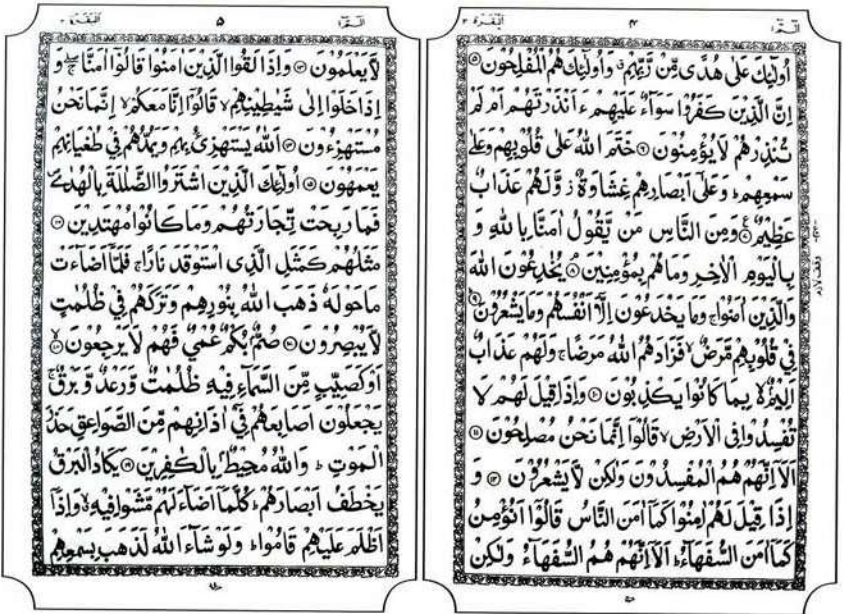 الٓمّٓ ٤ البقرة ٢
أُولَٰئِكَ عَلَىٰ هُدًى مِّنْ رَّبِّهِمْ وَأُولَٰئِكَ هُمُ الْمُفْلِحُونَ ۵
اِنَّ الَّذِيْنَ كَفَرُوْا سَوَآءٌ عَلَيْهِمْ ءَاَنْذَرْتَهُمْ اَمْ لَمْ
تُنْذِرْهُمْ لَا يُؤْمِنُوْنَ ۶ خَتَمَ اللّٰهُ عَلٰى قُلُوْبِهِمْ وَعَلٰى
سَمْعِهِمْ ؕ وَعَلٰٓى اَبْصَارِهِمْ غِشَاوَةٌ ز وَّلَهُمْ عَذَابٌ
عَظِيْمٌ ۷ وَمِنَ النَّاسِ مَنْ يَّقُوْلُ اٰمَنَّا بِاللّٰهِ وَ
بِالْيَوْمِ الْاٰخِرِ وَمَا هُمْ بِمُؤْمِنِيْنَ ۸ يُخٰدِعُوْنَ اللّٰهَ
وَالَّذِيْنَ اٰمَنُوْا ج وَمَا يَخْدَعُوْنَ اِلَّآ اَنْفُسَهُمْ وَمَا يَشْعُرُوْنَ ۹
فِيْ قُلُوْبِهِمْ مَّرَضٌ ۙ فَزَادَهُمُ اللّٰهُ مَرَضًا ج وَلَهُمْ عَذَابٌ
اَلِيْمٌ ۙ بِمَا كَانُوْا يَكْذِبُوْنَ ۱۰ وَاِذَا قِيْلَ لَهُمْ لَا
تُفْسِدُوْا فِى الْاَرْضِ ۙ قَالُوْٓا اِنَّمَا نَحْنُ مُصْلِحُوْنَ ۱۱
اَلَآ اِنَّهُمْ هُمُ الْمُفْسِدُوْنَ وَلٰكِنْ لَّا يَشْعُرُوْنَ ۱۲ وَ
اِذَا قِيْلَ لَهُمْ اٰمِنُوْا كَمَآ اٰمَنَ النَّاسُ قَالُوْٓا اَنُؤْمِنُ
كَمَآ اٰمَنَ السُّفَهَآءُ ؕ اَلَآ اِنَّهُمْ هُمُ السُّفَهَآءُ وَلٰكِنْ
وقف لازم
الٓمّٓ ۵ البقرة ٢
لَّا يَعْلَمُوْنَ ۱۳ وَاِذَا لَقُوا الَّذِيْنَ اٰمَنُوْا قَالُوْٓا اٰمَنَّا ج وَ
اِذَا خَلَوْا اِلٰى شَيٰطِيْنِهِمْ ۙ قَالُوْٓا اِنَّا مَعَكُمْ ۙ اِنَّمَا نَحْنُ
مُسْتَهْزِءُوْنَ ۱۴ اَللّٰهُ يَسْتَهْزِئُ بِهِمْ وَيَمُدُّهُمْ فِيْ طُغْيَانِهِمْ
يَعْمَهُوْنَ ۱۵ اُولٰٓئِكَ الَّذِيْنَ اشْتَرَوُا الضَّلٰلَةَ بِالْهُدٰى
فَمَا رَبِحَتْ تِّجَارَتُهُمْ وَمَا كَانُوْا مُهْتَدِيْنَ ۱۶
مَثَلُهُمْ كَمَثَلِ الَّذِى اسْتَوْقَدَ نَارًا ج فَلَمَّآ اَضَآءَتْ
مَا حَوْلَهٗ ذَهَبَ اللّٰهُ بِنُوْرِهِمْ وَتَرَكَهُمْ فِيْ ظُلُمٰتٍ
لَّا يُبْصِرُوْنَ ۱۷ صُمٌّۢ بُكْمٌ عُمْيٌ فَهُمْ لَا يَرْجِعُوْنَ ۱۸
اَوْ كَصَيِّبٍ مِّنَ السَّمَآءِ فِيْهِ ظُلُمٰتٌ وَّرَعْدٌ وَّبَرْقٌ ج
يَجْعَلُوْنَ اَصَابِعَهُمْ فِيْٓ اٰذَانِهِمْ مِّنَ الصَّوَاعِقِ حَذَرَ
الْمَوْتِ ؕ وَاللّٰهُ مُحِيْطٌۢ بِالْكٰفِرِيْنَ ۱۹ يَكَادُ الْبَرْقُ
يَخْطَفُ اَبْصَارَهُمْ ؕ كُلَّمَآ اَضَآءَ لَهُمْ مَّشَوْا فِيْهِ ۙ وَاِذَآ
اَظْلَمَ عَلَيْهِمْ قَامُوْا ؕ وَلَوْ شَآءَ اللّٰهُ لَذَهَبَ بِسَمْعِهِمْ